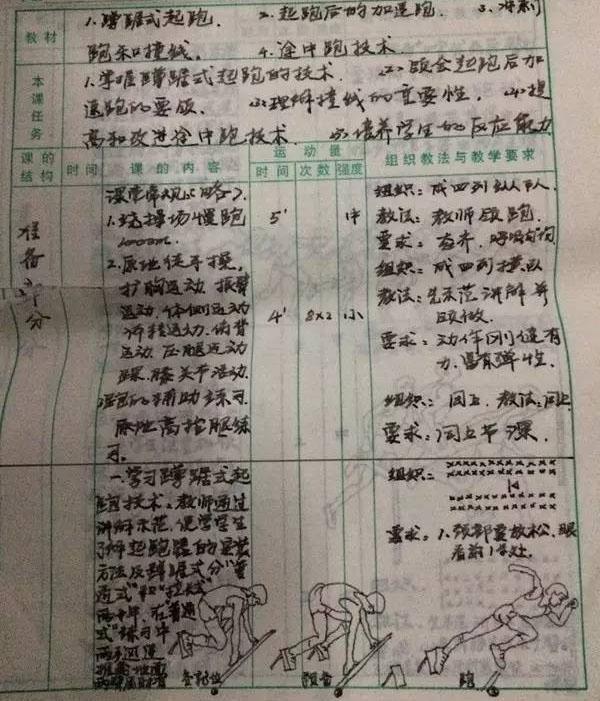 教材
1.蹲踞式起跑.
2.起跑后的加速跑.
3.冲刺
跑和撞线.
4.途中跑技术.
本课任务
1.掌握蹲踞式起跑的技术.
体会起跑后加
速跑的要领.
理解撞线的重要性.
提
高和改进途中跑技术.
培养学生的反应能力
课的结构
时间
课的内容
运动量
时间
次数
强度
组织教法与教学要求
准备部分
课堂常规(略).
1.绕操场慢跑
1000m.
5'
中
组织:成四列纵队.
教法:教师领跑.
要求:
2.原地徒手操.
扩胸运动 振臂
运动.体侧运动
运动.
运动.压腿运动
踝.膝关节活动.
4'
8×2
小
组织:成四列横队
教法:先示范讲解并
领做.
要求:动作刚健有
力.富有弹性.
辅助练习.
原地高抬腿练
习.
组织:同上.教法:同上
要求:同上
一.学习蹲踞式起
跑技术.教师通过
讲解示范,使学生
了解起跑器的安装
方法及蹲踞式分"普
通式"和"拉长式"
两种.在普通
式"练习中
组织:
要求:1.颈部要放松,眼
看前1米处.
各就位
预备
跑